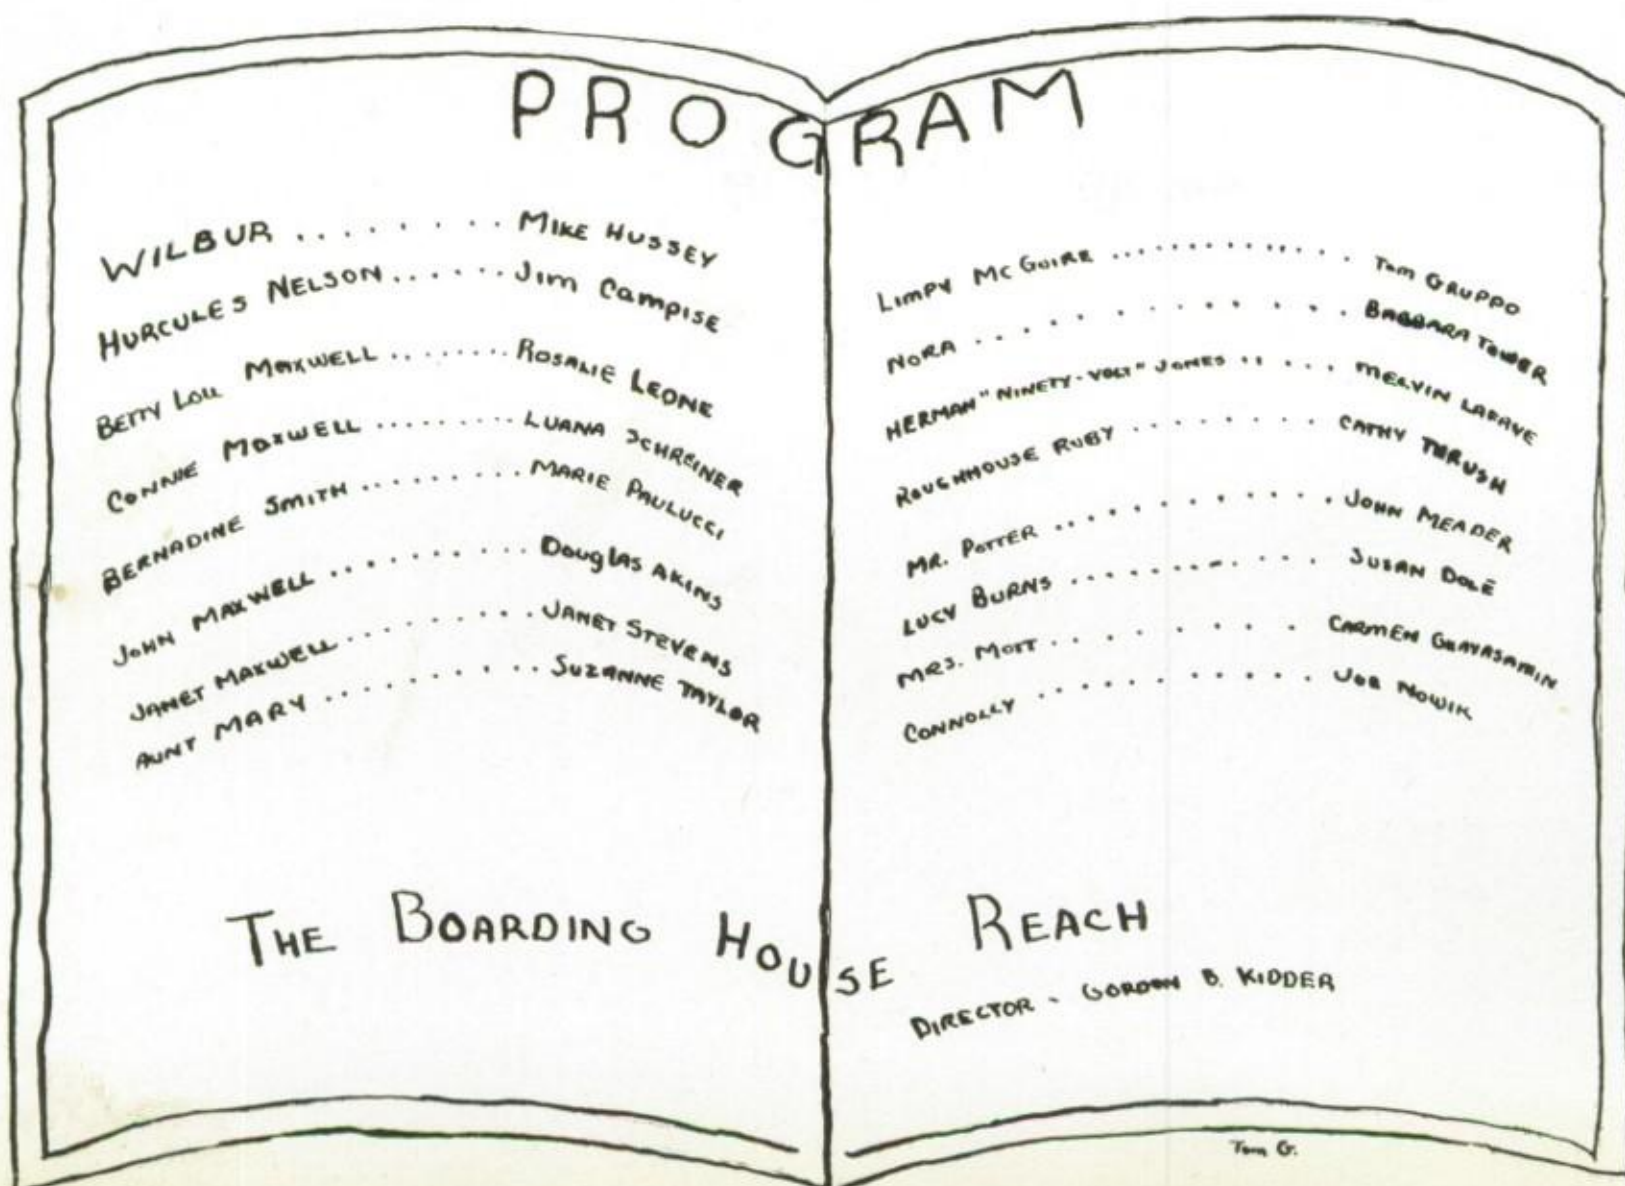 PROGRAM
WILBUR ........ MIKE HUSSEY
HURCULES NELSON ...... Jim CAMPISE
BETTY LOU MAXWELL ....... ROSALIE LEONE
CONNIE MAXWELL ........ LUANA SCHREINER
BERNADINE SMITH ......... MARIE PAULUCCI
JOHN MAXWELL ......... DOUGLAS AKINS
JANET MAXWELL ........ JANET STEVENS
AUNT MARY ......... SUZANNE TAYLOR
LIMPY MC GUIRE ............ Tom GRUPPO
NORA .......... BARBARA TOWER
HERMAN "NINETY-VOLT" JONES ..... MELVIN LAFAVE
ROUGHHOUSE RUBY ........ CATHY THRUSH
MR. POTTER ........... JOHN MEADER
LUCY BURNS ........... SUSAN DOLE
MRS. MOTT ......... CARMEN
CONNOLLY .......... JOE NOWIK
THE BOARDING HOUSE REACH
DIRECTOR - GORDON B. KIDDER
Tom G.